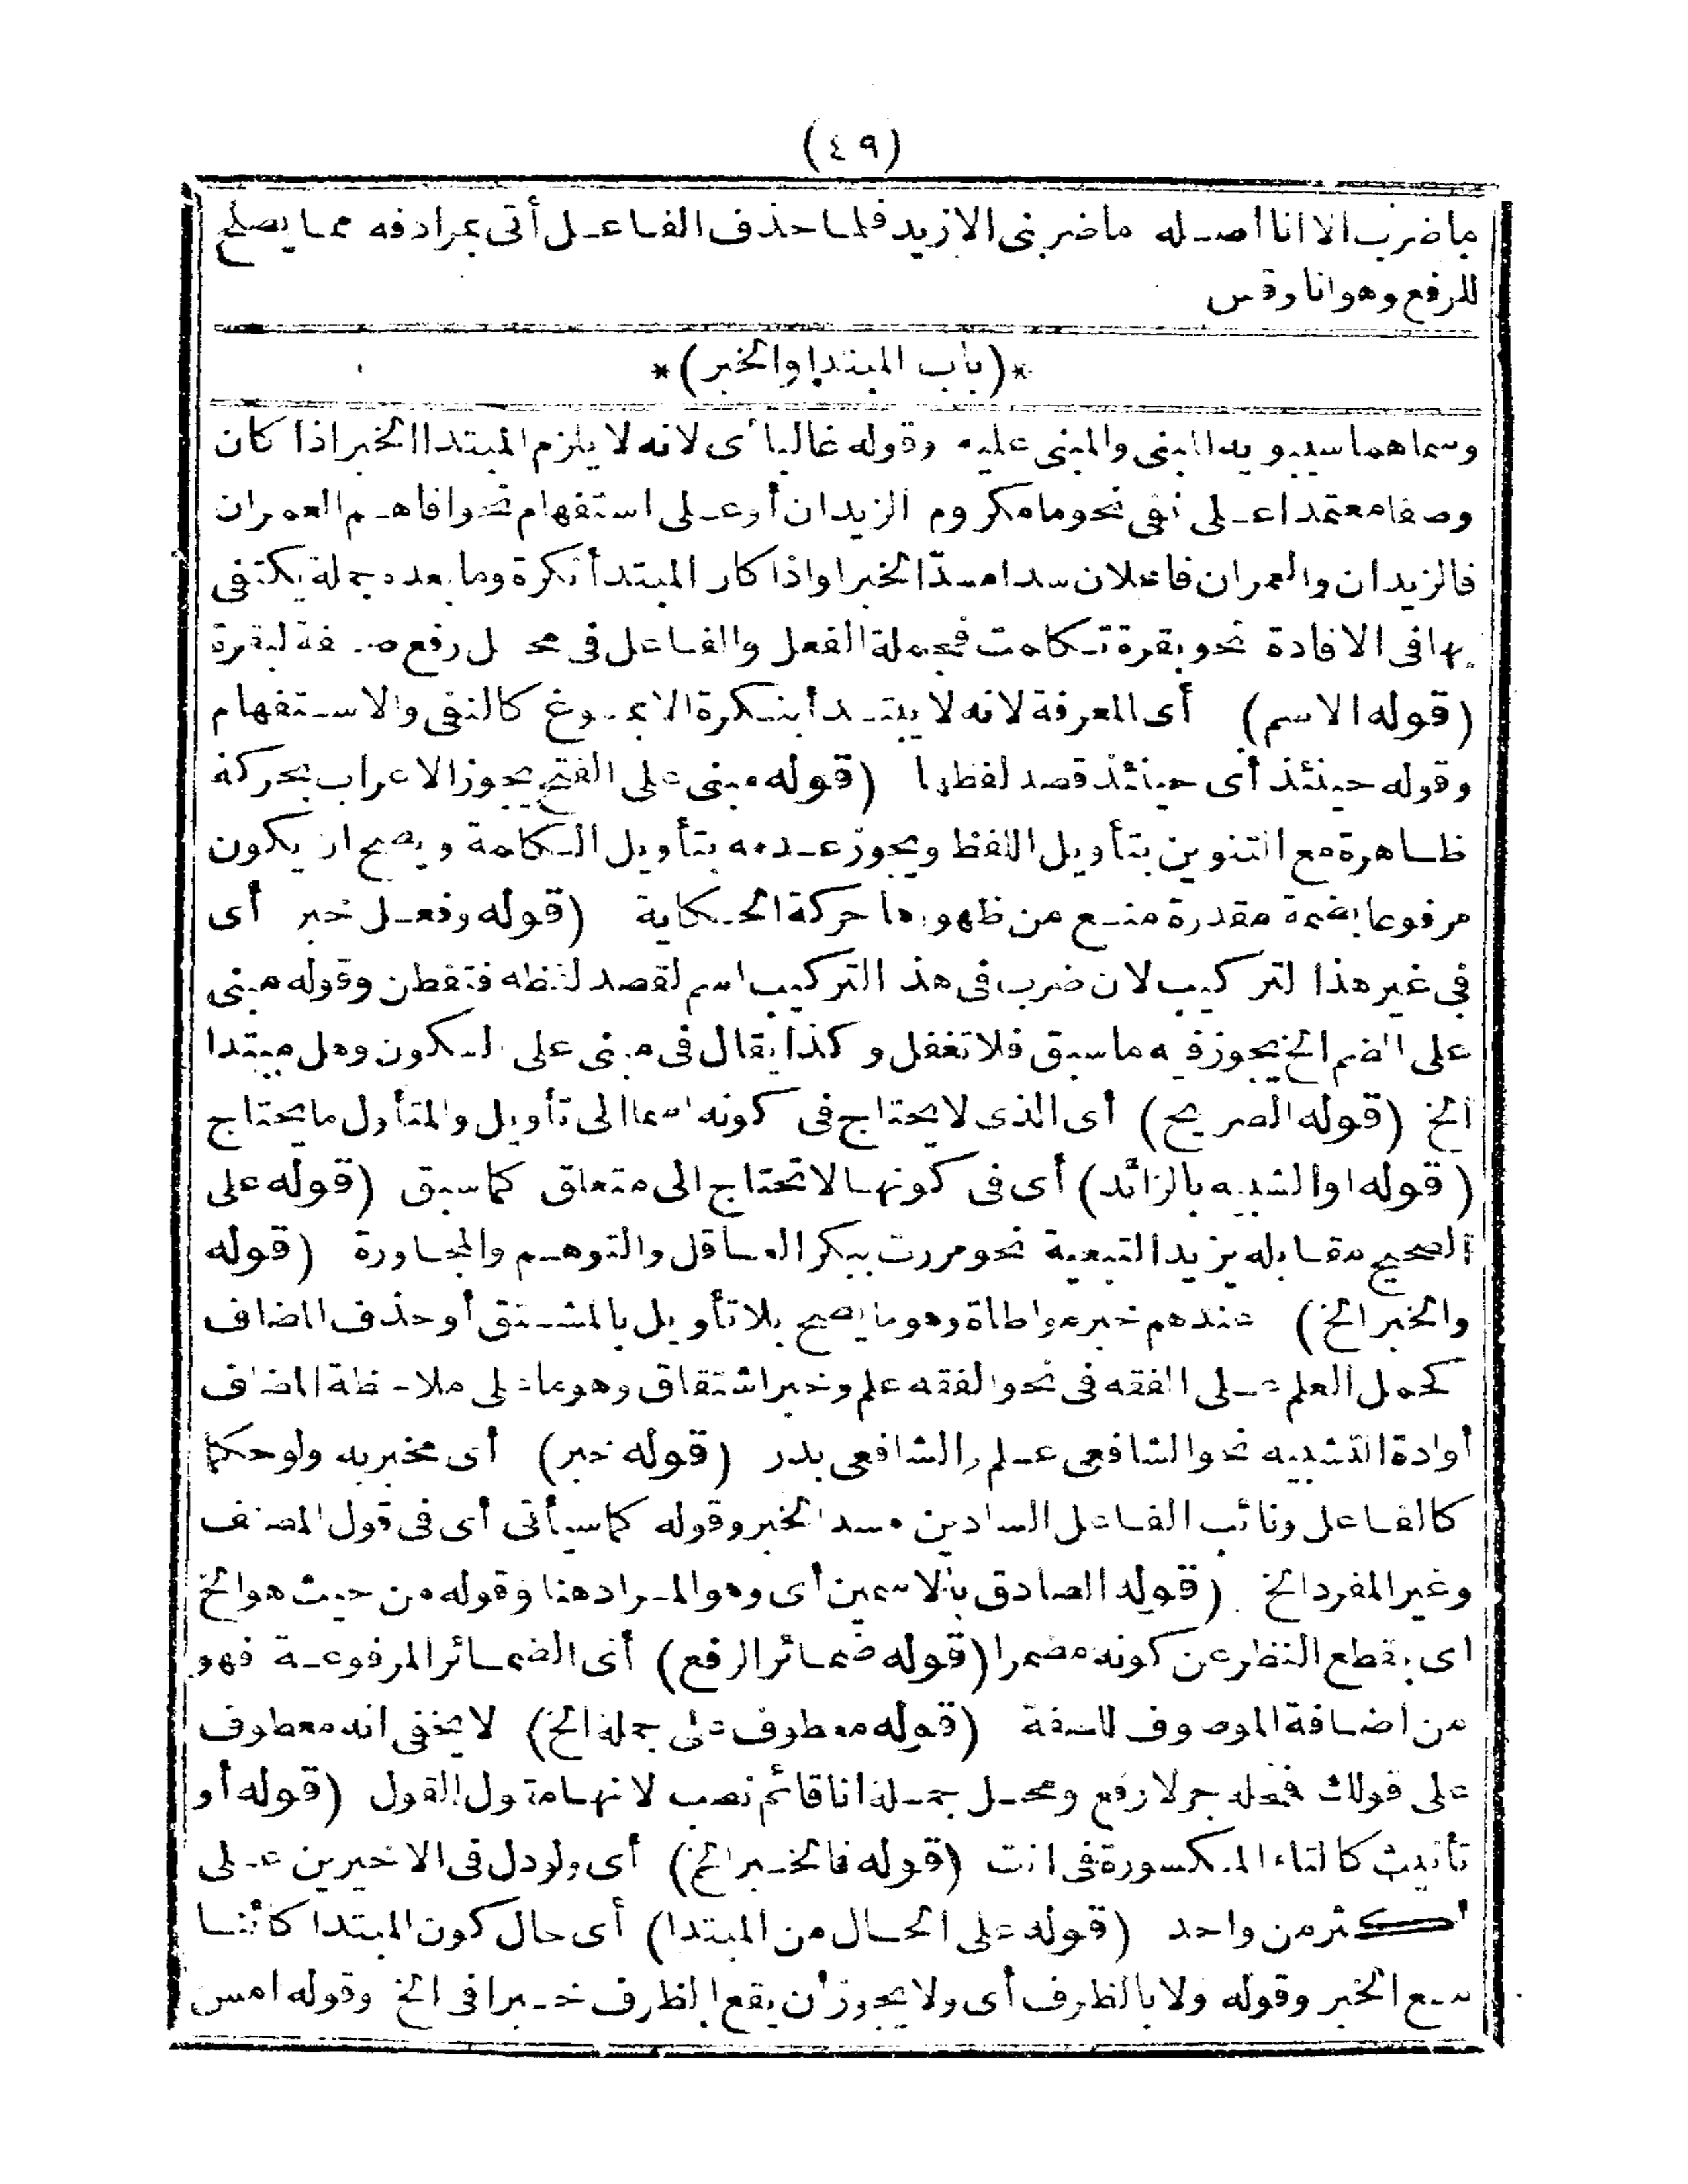 (٤٩)
ماضرب الا انا اصله ماضربنى الازيد فلما حذف الفاعل أتى بمرادفه مما يصلح
للرفع وهو انا وقس
*(باب المبتدا والخبر)*
وسماهما سيبويه المبنى والمبنى عليه وقوله غالبا أى لانه لا يلزم المبتدا الخبر اذا كان
وصفا معتمدا على نفى نحو ما مكروم الزيدان أو على استفهام نحو افاهم العمران
فالزيدان والعمران فاعلان سدا مسدّ الخبر اواذا كان المبتدأ نكرة وما بعده جملة يكتفى
بها فى الافادة نحو بقرة تكلمت فجملة الفعل والفاعل فى محل رفع صفة لبقرة
(قوله الاسم) أى المعرفة لانه لا يبتدأ بنكرة الا بمسوغ كالنفى والاستفهام
وقوله حينئذ أى حينئذ قصد لفظها (قوله مبنى على الفتح يجوز الاعراب بحركة
ظاهرة مع التنوين بتأويل اللفظ ويجوز عدمه بتأويل الكلمة ويصح ان يكون
مرفوعا بضمة مقدرة منع من ظهورها حركة الحكاية (قوله وفعل خبر أى
فى غير هذا التركيب لان ضرب فى هذا التركيب اسم لقصد لفظه فتفطن وقوله مبنى
على الضم الخ يجوز فيه ما سبق فلا تغفل وكذا يقال فى مبنى على السكون وهل مبتدا
الخ (قوله الصريح) أى الذى لا يحتاج فى كونه اسما الى تأويل والمتأول ما يحتاج
(قوله او الشبيه بالزائد) أى فى كونها لا تحتاج الى متعلق كما سبق (قوله على
الصحيح مقابله يزيد التبعية نحو مررت ببكر العاقل والتوهم والمجاورة (قوله
والخبر الخ) عندهم خبر مواطاة وهو ما يصح بلا تأويل بالمشتق أو حذف المضاف
كحمل العلم على الفقه فى نحو الفقه علم وخبر اشتقاق وهو ما على ملاحظة المضاف
أو ادة التشبيه نحو الشافعى علم والشافعى بدر (قوله خبر) أى مخبر به ولو حكما
كالفاعل ونائب الفاعل السادين مسد الخبر وقوله كما سيأتى أى فى قول المصنف
وغير المفرد الخ (قوله الصادق بالاسمين أى وهو المراد هنا وقوله من حيث هو الخ
اى بقطع النظر عن كونه مضمرا (قوله ضمائر الرفع) أى الضمائر المرفوعة فهو
من اضافة الموصوف للصفة (قوله معطوف على جملة الخ) لا يخفى انه معطوف
على قولك فمحله جر لا رفع ومحل جملة انا قائم نصب لانها مقول القول (قوله أو
تأنيث كالتاء المكسورة فى انت (قوله فالخبر الخ) أى ولو دل فى الاخيرين على
أكثر من واحد (قوله على الحال من المبتدا) أى حال كون المبتدا كائنا
مع الخبر وقوله ولا بالظرف أى ولا يجوز أن يقع الظرف خبرا فى الخ وقوله امس